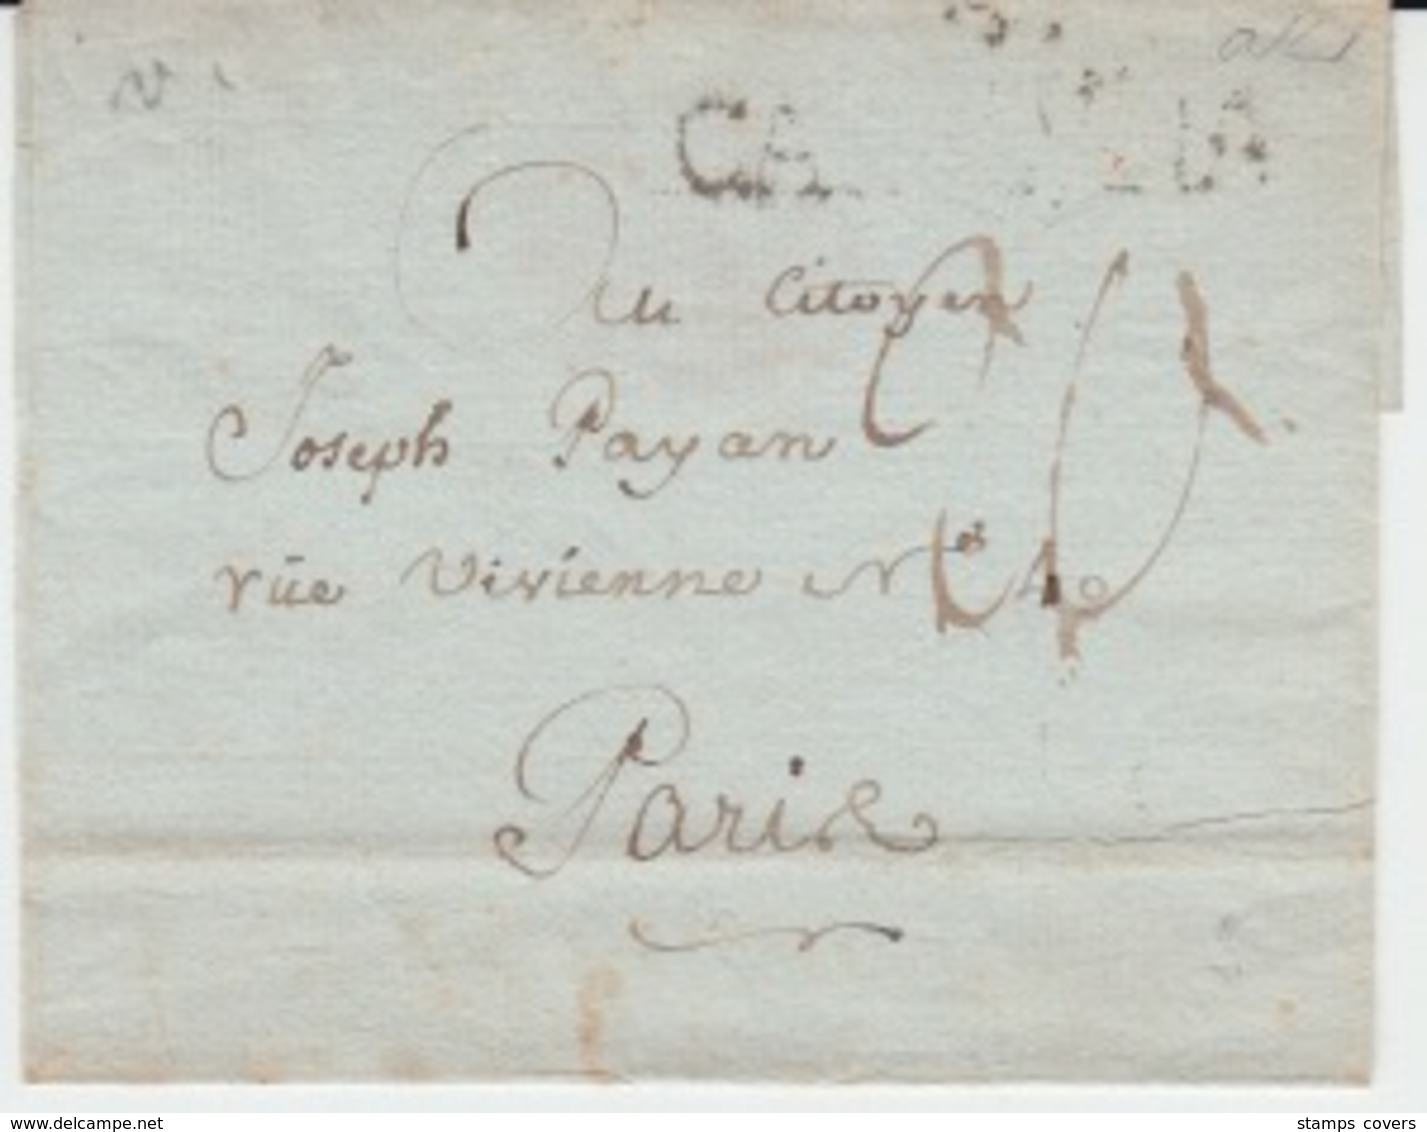 CA
Au Citoyen
Joseph Payan
rüe Vivienne N°
Paris
www.delcampe.net
stamps covers